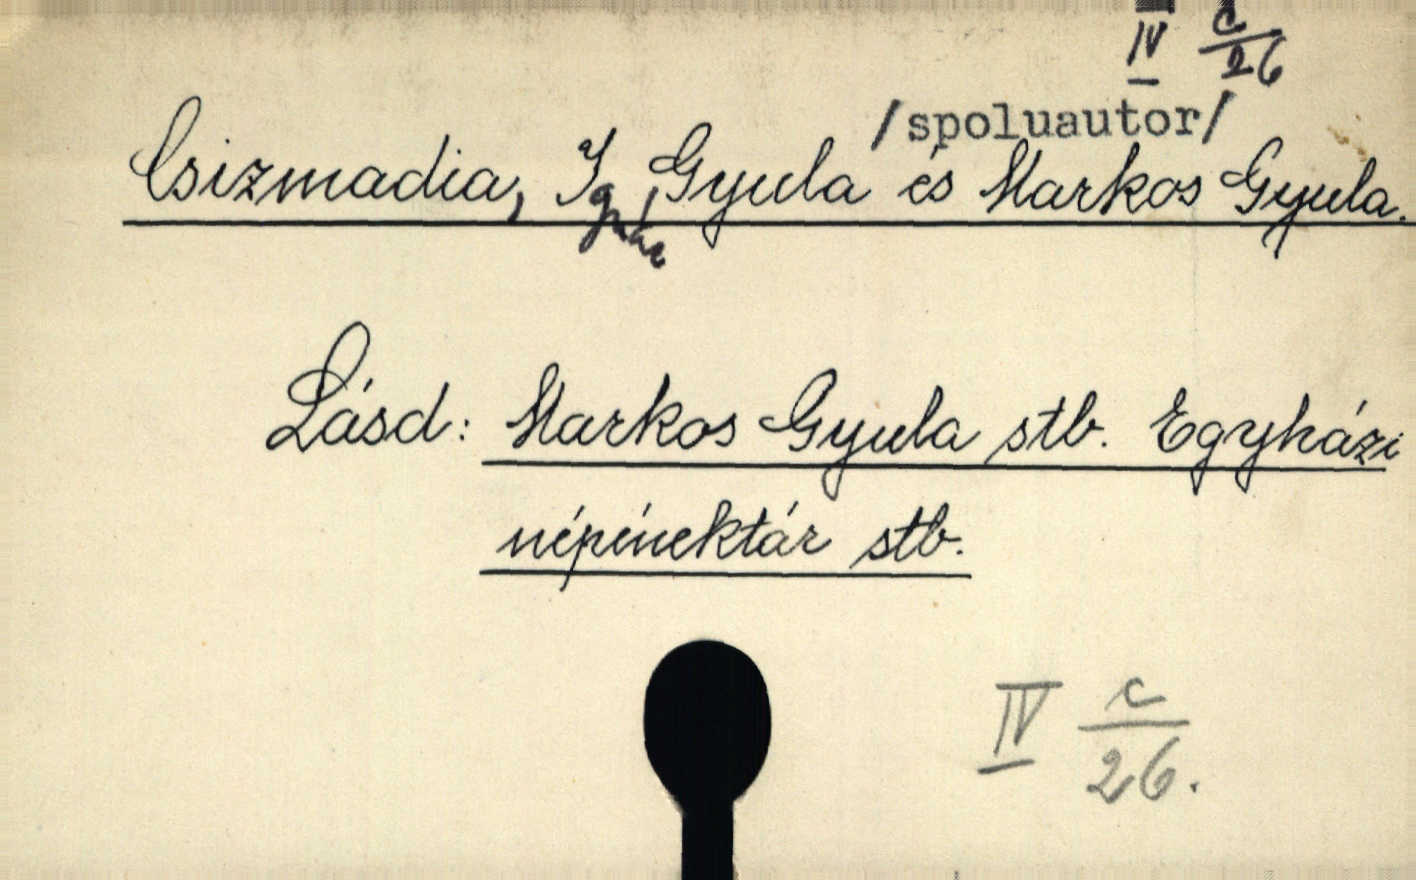 IV c/26
/spoluautor/
Csizmadia, Ignác Gyula és Markos Gyula.
Lásd: Markos Gyula stb. Egyházi
népénektár stb.
IV c/26.